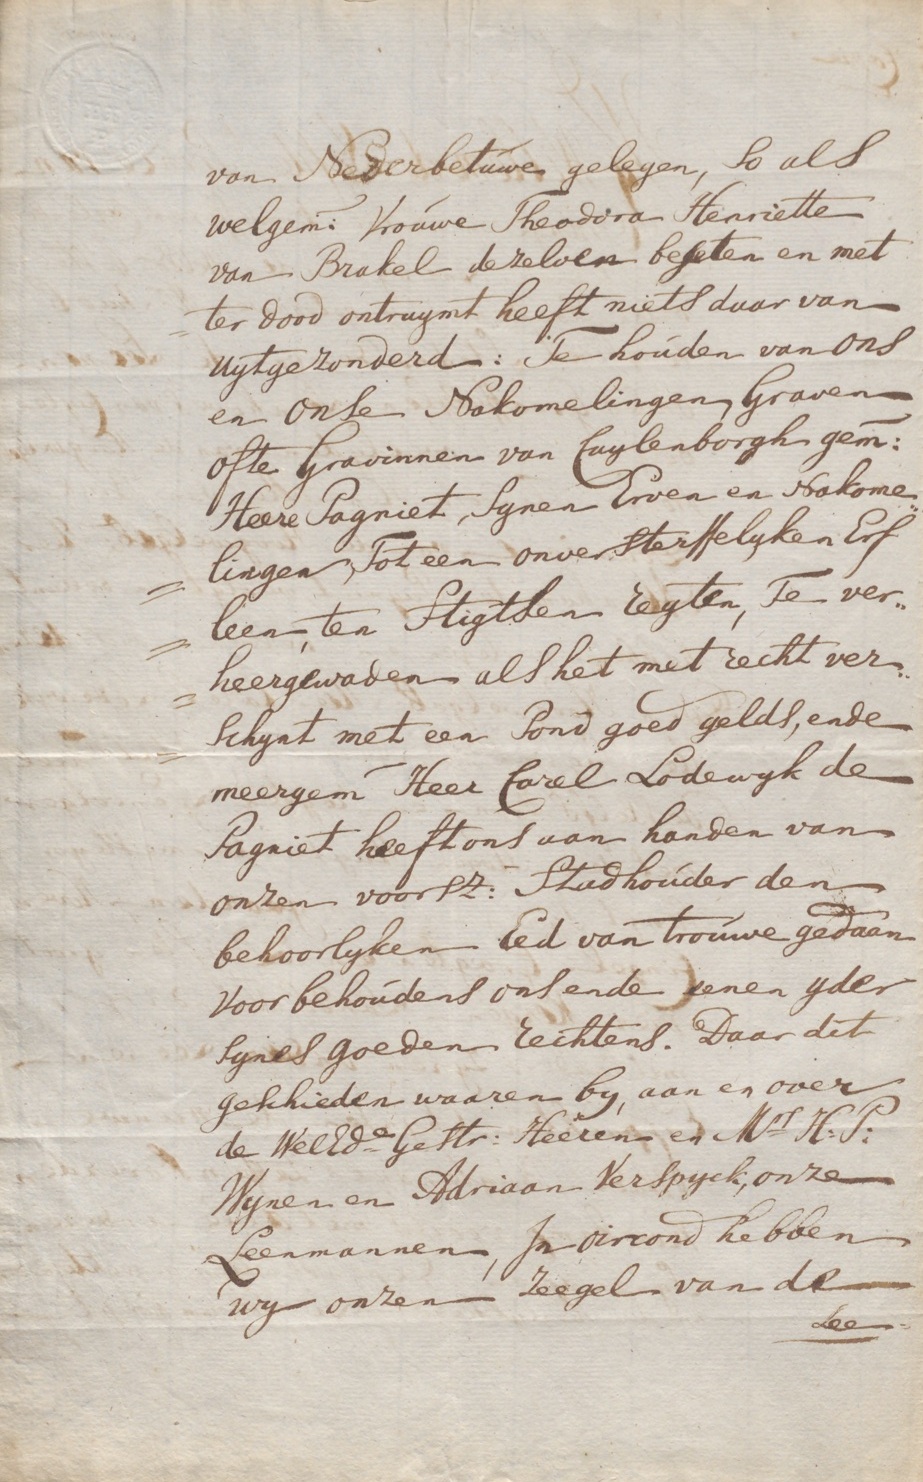 van Nederbetuwe gelegen, so als
welgem: Vrouwe Theodora Henriette
van Brakel dezelven beseten en met
ter dood ontruymt heeft niets daar van
uytgezonderd: Te houden van ons
en onse Nakomelingen, Graven
ofte Gravinnen van Cuylenborgh gem:
Heere Pagniet, Synen Erven en Nakome„
lingen, Tot een onversterffelyken Erf
leen, ten Stigtsen reyten, Te ver„
heergewaden als het met recht ver„
schynt met een Pond goed gelds, ende
meergem Heer Carel Lodewyk de
Pagniet heeft ons aan handen van
onzen voorsz: Stadhouder den
behoorlyken Eed van trouwe gedaan
voorbehoudens ons ende enen yder
synes goeden rechtens. Daar dit
geschieden waaren by, aan en over
de WelEde Gestr: Heeren en Mrs H: P:
Wynen en Adriaan Verspyck, onze
Leenmannen, In oircond hebben
wy onzen Zeegel van de
Lee-